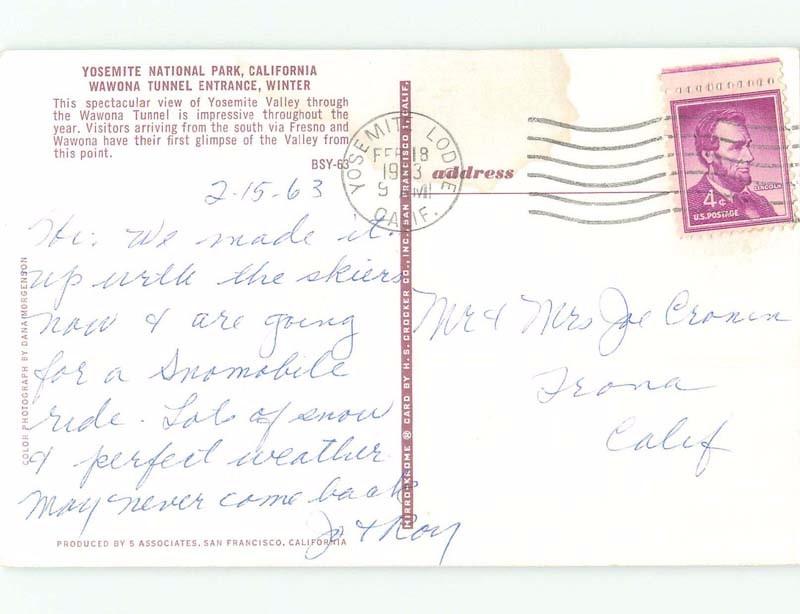 YOSEMITE NATIONAL PARK, CALIFORNIA
WAWONA TUNNEL ENTRANCE, WINTER
This spectacular view of Yosemite Valley through
the Wawona Tunnel is impressive throughout the
year. Visitors arriving from the south via Fresno and
Wawona have their first glimpse of the Valley from
this point.
BSY-63
2-15-63
Hi: We made it
up with the skiers
now & are going
for a Snomobile
ride. Lots of snow
& perfect weather
may never come back
Jo & Roy
COLOR PHOTOGRAPH BY DANA MORGENSON
PRODUCED BY 5 ASSOCIATES, SAN FRANCISCO, CALIFORNIA
MIRRO-KROME ® CARD BY H. S. CROCKER CO., INC., SAN FRANCISCO 1, CALIF.
YOSEMITE LODGE
FEB 18
1963
9 AM
CALIF.
address
4¢
LINCOLN
U.S. POSTAGE
Mr & Mrs Joe Cronin
Trona
Calif